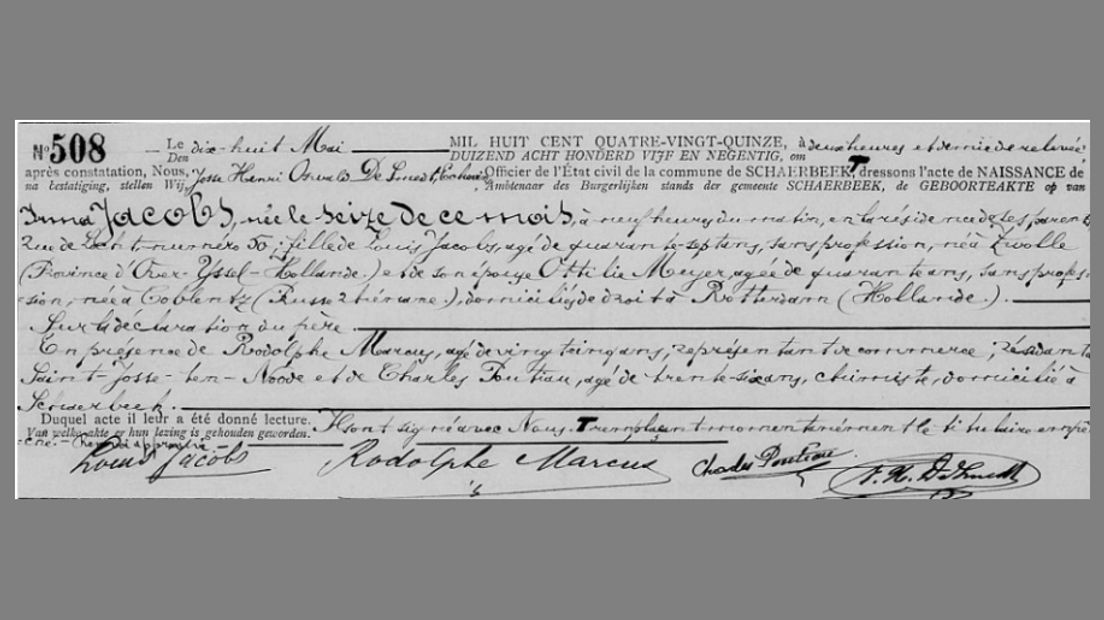 N° 508 — Le dix-huit Mai — MIL HUIT CENT QUATRE-VINGT-QUINZE, à deux heures et demie de relevée
Den DUIZEND ACHT HONDERD VIJF EN NEGENTIG, om
après constatation, Nous, Josse Henri Oswald De Smedt, Echevin Officier de l'État civil de la commune de SCHAERBEEK, T dressons l'acte de NAISSANCE de
na bestatiging, stellen Wij, Ambtenaar des Burgerlijken stands der gemeente SCHAERBEEK, de GEBOORTEAKTE op van
Irma Jacobs, née le seize de ce mois, à neuf heures du matin, en la résidence de ses parents
Rue de numéro 50; fille de Louis Jacobs, agé de quarante-sept ans, sans profession, né à Zwolle
(Province d'Over-Yssel-Hollande.) et de son épouse Ottilie Meyer, agée de quarante ans, sans profes-
-sion, née à Coblentz (Prusse Rhénane.), domiciliés de droit à Rotterdam (Hollande.).
Sur la déclaration du père.
En présence de Rodolphe Marcus, agé de vingt cinq ans, représentant de commerce, résidant à
Saint-Josse-ten-Noode et de Charles Ponteau, agé de trente-six ans, chimiste, domicilié à
Schaerbeek.
Duquel acte il leur a été donné lecture. Ils ont signé avec Nous. T remplaçant momentanément le titulaire empê-
Van welke akte er hun lezing is gehouden geworden.
-ché.- approuvé
Louis Jacobs Rodolphe Marcus Charles Ponteau. J. H. De Smedt